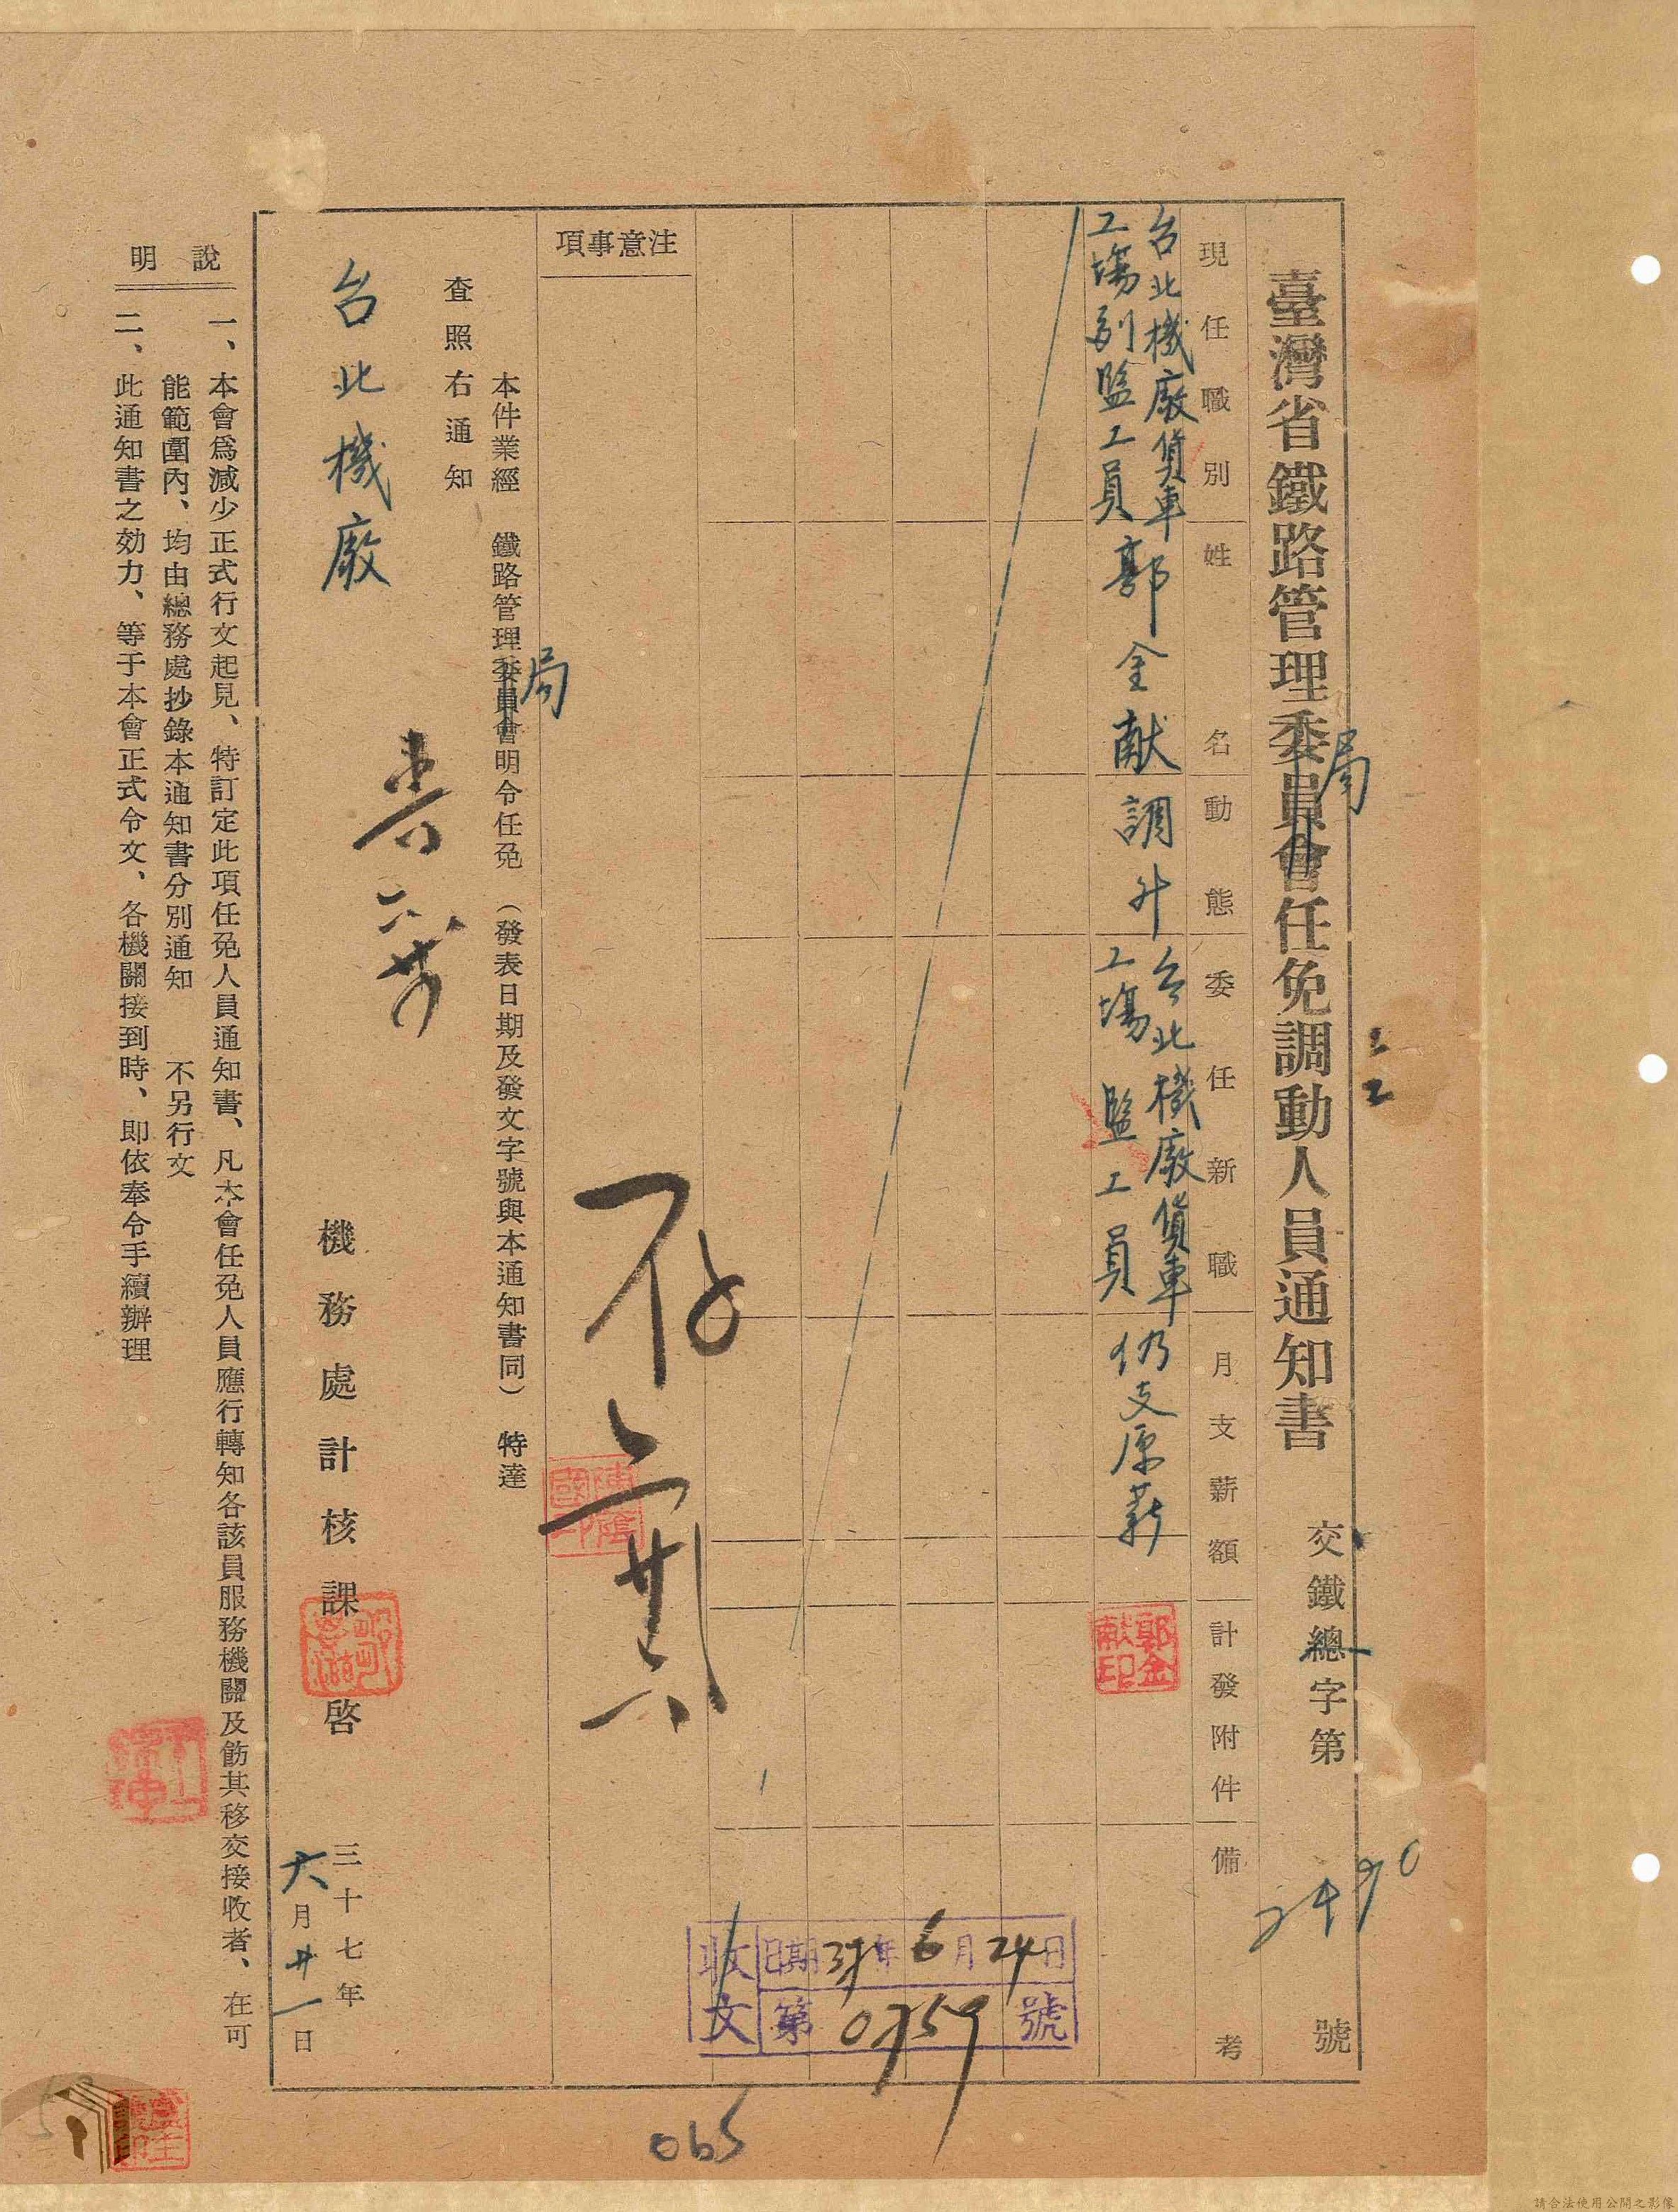 臺灣省鐵路管理委員會任免調動人員通知書
局
交鐵總字第
2490
號
現任職別
姓名
動態
委任新職
月支薪額
計發附件
備考
台北機廠貨車
工場副監工員
郭金献
調升
台北機廠貨車
工場監工員
仍支原薪
郭金
献印
收文
日期37年6月24日
第0759號
注意事項
存
本件業經 鐵路管理委員會明令任免（發表日期及發文字號與本通知書同） 特達
局
查照右通知
台北機廠
機務處計核課
啓
三十七年
六月廿一日
說明
一、本會爲減少正式行文起見、特訂定此項任免人員通知書、凡本會任免人員應行轉知各該員服務機關及飭其移交接收者、在可
能範圍內、均由總務處抄錄本通知書分別通知 不另行文
二、此通知書之効力、等于本會正式令文、各機關接到時、即依奉令手續辦理
065
請合法使用公開之影像